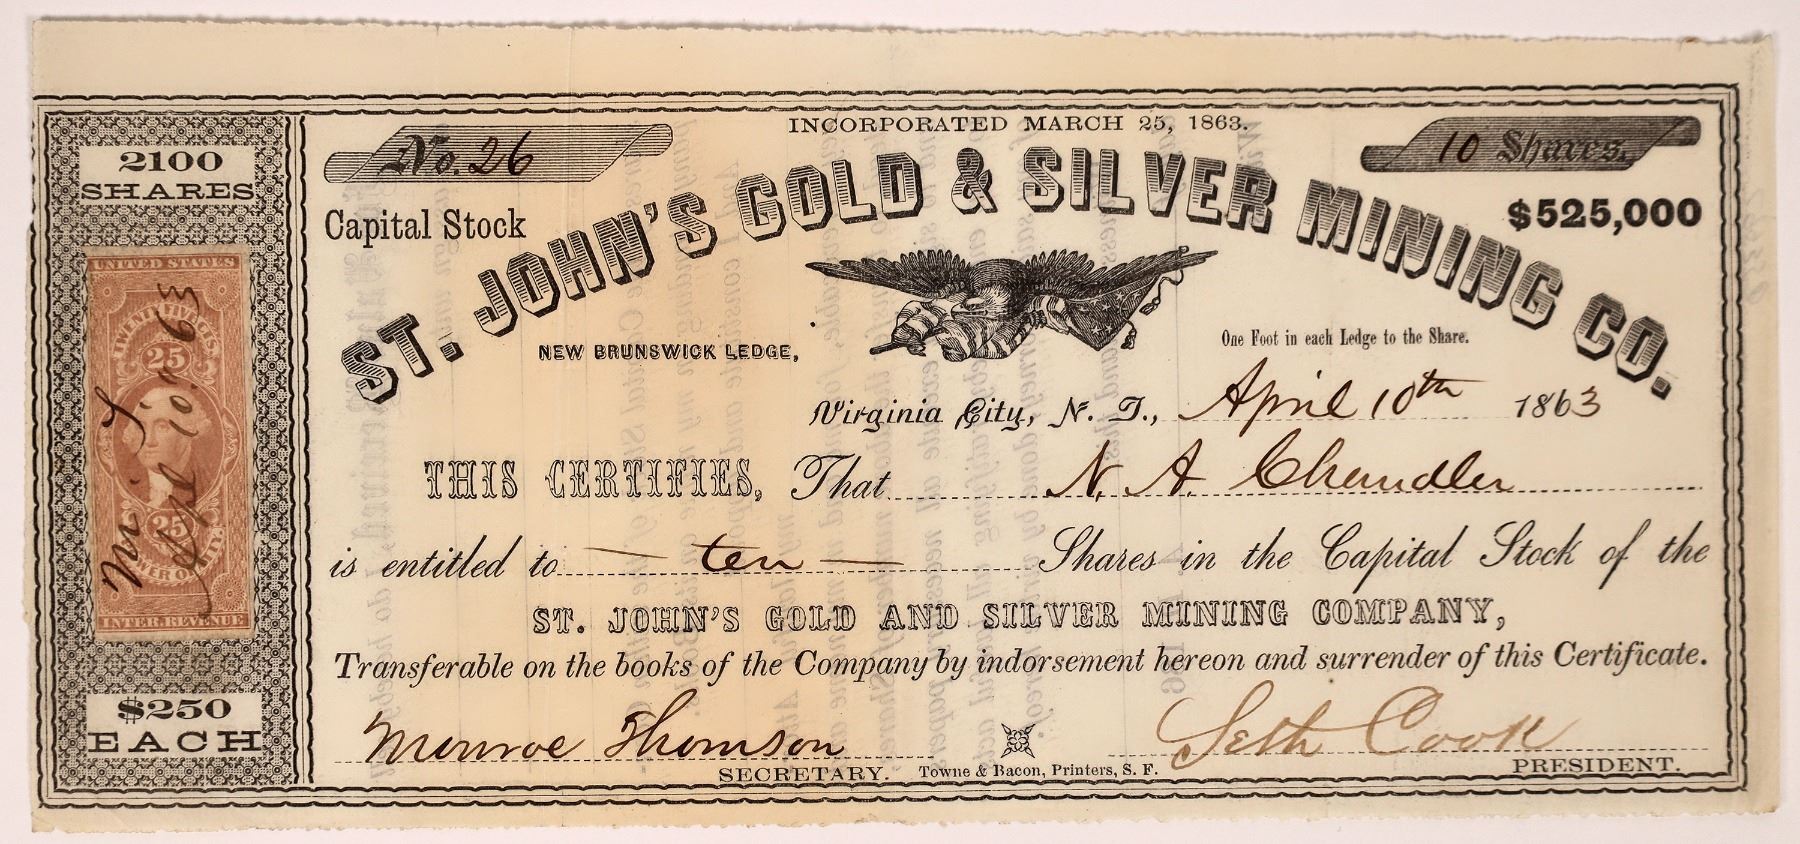 INCORPORATED MARCH 25, 1863.
No. 26
10 Shares.
2100
SHARES
Capital Stock
$525,000
ST. JOHN'S GOLD & SILVER MINING CO.
NEW BRUNSWICK LEDGE,
One Foot in each Ledge to the Share.
UNITED STATES
TWENTY FIVE CTS.
25
25
INTER. REVENUE
M. T.
Apl 10. 63
Virginia City, N. T., April 10th 1863
THIS CERTIFIES, That N. A. Chandler
is entitled to ten Shares in the Capital Stock of the
ST. JOHN'S GOLD AND SILVER MINING COMPANY,
Transferable on the books of the Company by indorsement hereon and surrender of this Certificate.
$250
EACH
Monroe Thomson
Seth Cook
SECRETARY.
Towne & Bacon, Printers, S. F.
PRESIDENT.